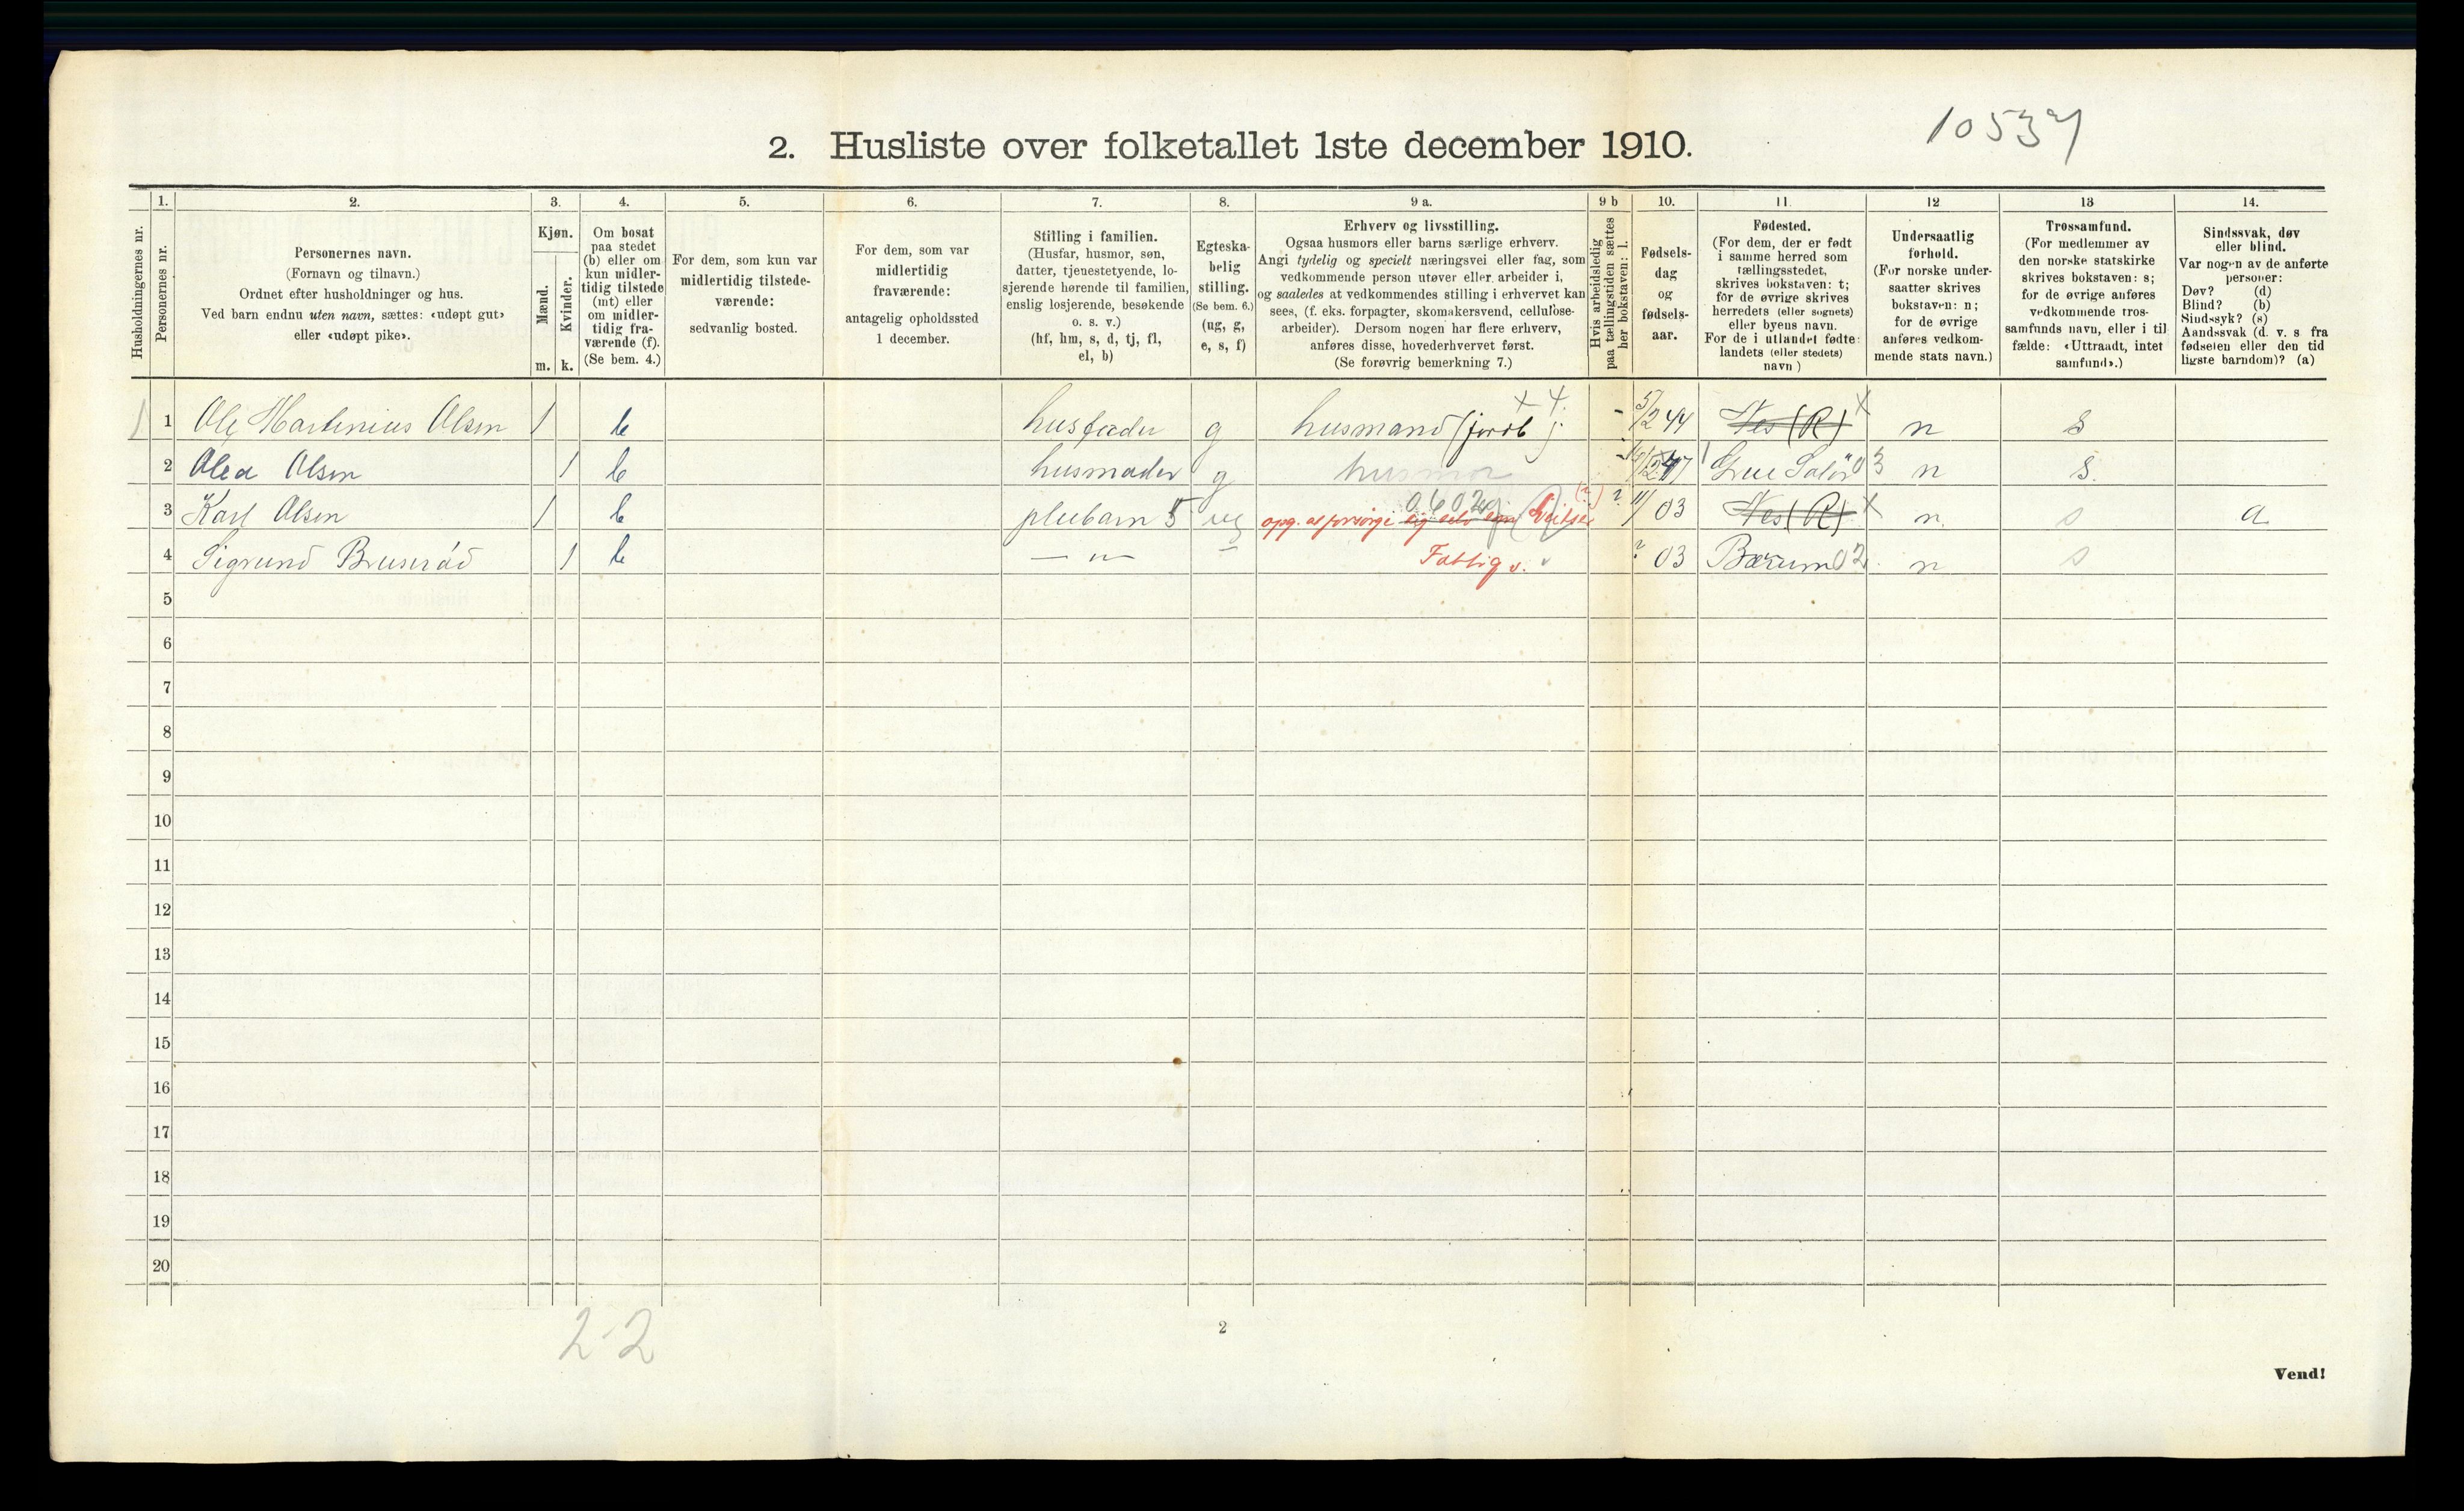 10537
2. Husliste over folketallet 1ste december 1910.
Husholdningernes nr.
1.
Personernes nr.
2.
Personernes navn.
(Fornavn og tilnavn.)
Ordnet efter husholdninger og hus.
Ved barn endnu uten navn, sættes: «udøpt gut»
eller «udøpt pike».
3.
Kjøn.
Mænd.
Kvinder.
m. k.
4.
Om bosat
paa stedet
(b) eller om
kun midler-
tidig tilstede
(mt) eller
om midler-
tidig fra-
værende (f).
(Se bem. 4.)
5.
For dem, som kun var
midlertidig tilstede-
værende:
sedvanlig bosted.
6.
For dem, som var
midlertidig
fraværende:
antagelig opholdssted
1 december.
7.
Stilling i familien.
(Husfar, husmor, søn,
datter, tjenestetyende, lo-
sjerende hørende til familien,
enslig losjerende, besøkende
o. s. v.)
(hf, hm, s, d, tj, fl,
el, b)
8.
Egteska-
belig
stilling.
(Se bem. 6.)
(ug, g,
e, s, f)
9 a.
Erhverv og livsstilling.
Ogsaa husmors eller barns særlige erhverv.
Angi tydelig og specielt næringsvei eller fag, som
vedkommende person utøver eller arbeider i,
og saaledes at vedkommendes stilling i erhvervet kan
sees, (f. eks. forpagter, skomakersvend, cellulose-
arbeider). Dersom nogen har flere erhverv,
anføres disse, hovederhvervet først.
(Se forøvrig bemerkning 7.)
9 b
Hvis arbeidsledig
paa tællingstiden sættes
her bokstaven: l.
10.
Fødsels-
dag
og
fødsels-
aar.
11.
Fødested.
(For dem, der er født
i samme herred som
tællingsstedet,
skrives bokstaven: t;
for de øvrige skrives
herredets (eller sognets)
eller byens navn.
For de i utlandet fødte:
landets (eller stedets)
navn )
12
Undersaatlig
forhold.
(For norske under-
saatter skrives
bokstaven: n;
for de øvrige
anføres vedkom-
mende stats navn.)
13
Trossamfund.
(For medlemmer av
den norske statskirke
skrives bokstaven: s;
for de øvrige anføres
vedkommende tros-
samfunds navn, eller i til
fælde: «Uttraadt, intet
samfund».)
14.
Sindssvak, døv
eller blind.
Var nogen av de anførte
personer:
Døv? (d)
Blind? (b)
Sindssyk? (s)
Aandssvak (d. v. s fra
fødselen eller den tid
ligste barndom)? (a)
1 1 Ole Martinius Olsen 1 b husfader g husmand (jordb) - 5/2 44 Nes (R) x n s
2 Olea Olsen 1 b husmoder g husmor - Grue Solør 03 n s.
3 Karl Olsen 1 b pleibarn 5 ug 0602 opg. at forsørge sig selv 03 Nes (R) x n. s a
4 Sigrund Bruserød 1 b — „ — - Fattig v. ? 03 Bærum 02. n s
5
6
7
8
9
10
11
12
13
14
15
16
17
18
19
20
2-2
2
Vend!